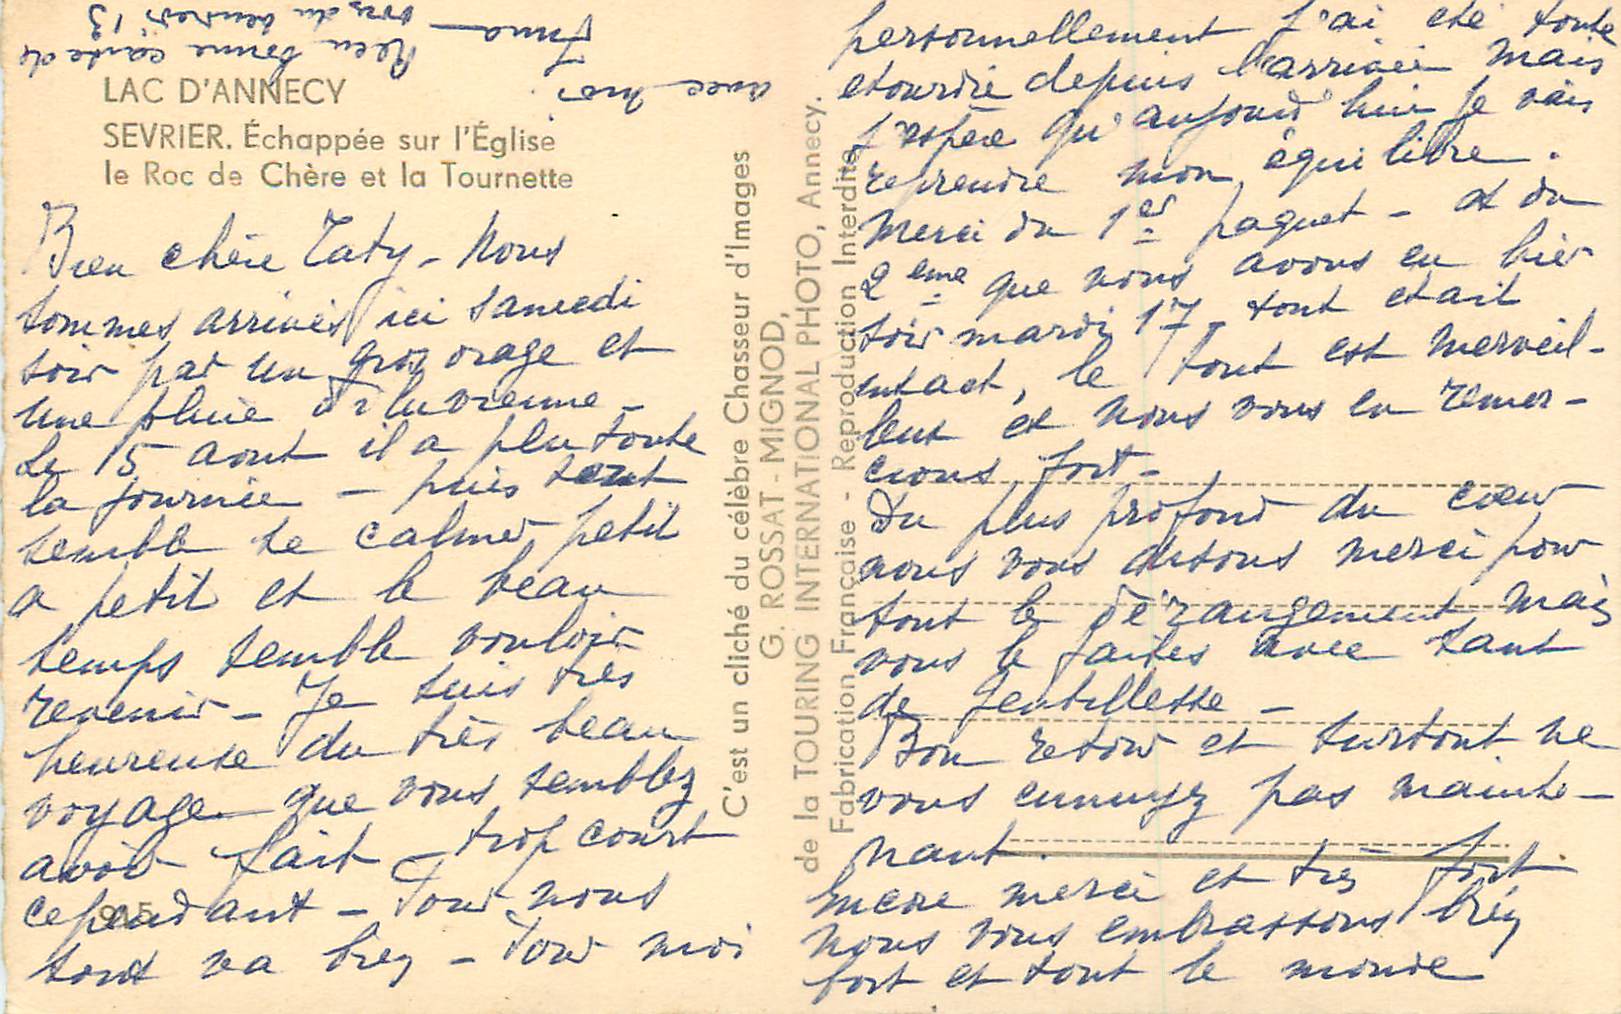 LAC D'ANNECY
SEVRIER. Échappée sur l'Église
le Roc de Chère et la Tournette
Bien chère Taty - Nous
sommes arrivés ici samedi
soir par un gros orage et
une pluie diluvienne -
Le 15 aout il a plu toute
la journée - puis tout
semble se calmer petit
a petit et le beau
temps semble vouloir
revenir - Je suis très
heureuse du très beau
voyage que vous semblez
avoir fait trop court
cependant - Pour nous
tout va bien - Pour moi
915
C'est un cliché du célèbre Chasseur d'Images
G. ROSSAT-MIGNOD,
de la TOURING INTERNATIONAL PHOTO, Annecy.
Fabrication Française - Reproduction Interdite.
personnellement j'ai été toute
etourdie depuis l'arrivée mais
j'espere qu'aujourd'hui je vais
reprendre mon équilibre.
Merci du 1er paquet - et du
2eme que nous avons eu hier
soir mardi 17 - tout etait
intact, le tout est merveil-
leux et nous vous en remer-
cions fort -
Du plus profond du cœur
nous vous disons merci pour
tout le dérangement mais
vous le faites avec tant
de gentillesse -
Bon retour et surtout ne
vous ennuyez pas mainte-
nant.
Encore merci et très fort
nous vous embrassons bien
fort et tout le monde
avec moi.
Reçu bonne carte de
vous du vendredi 13